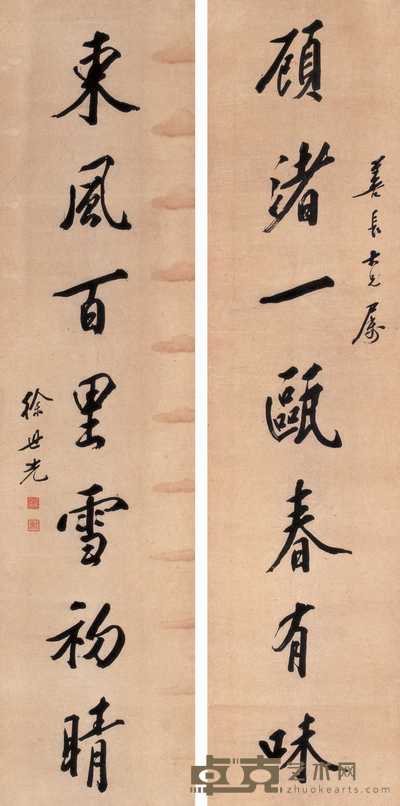 善長大兄屬
顧渚一甌春有味
東風百里雪初晴
徐世光
卓克艺术网
zhuokearts.com